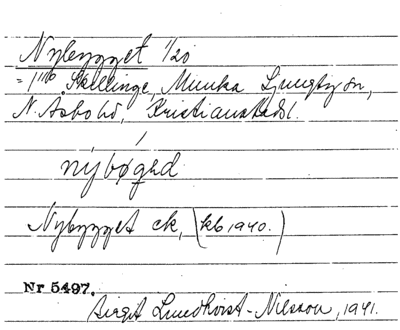 Nybygget 1/20
= 1/16 Skillinge, Munka Ljungby sn,
N. Åsbo hd, Kristianstads l.
nybøgəd
Nybygget ck, (kb 1940.)
Nr 5497.
Birgit Lundkvist-Nilsson, 1941.